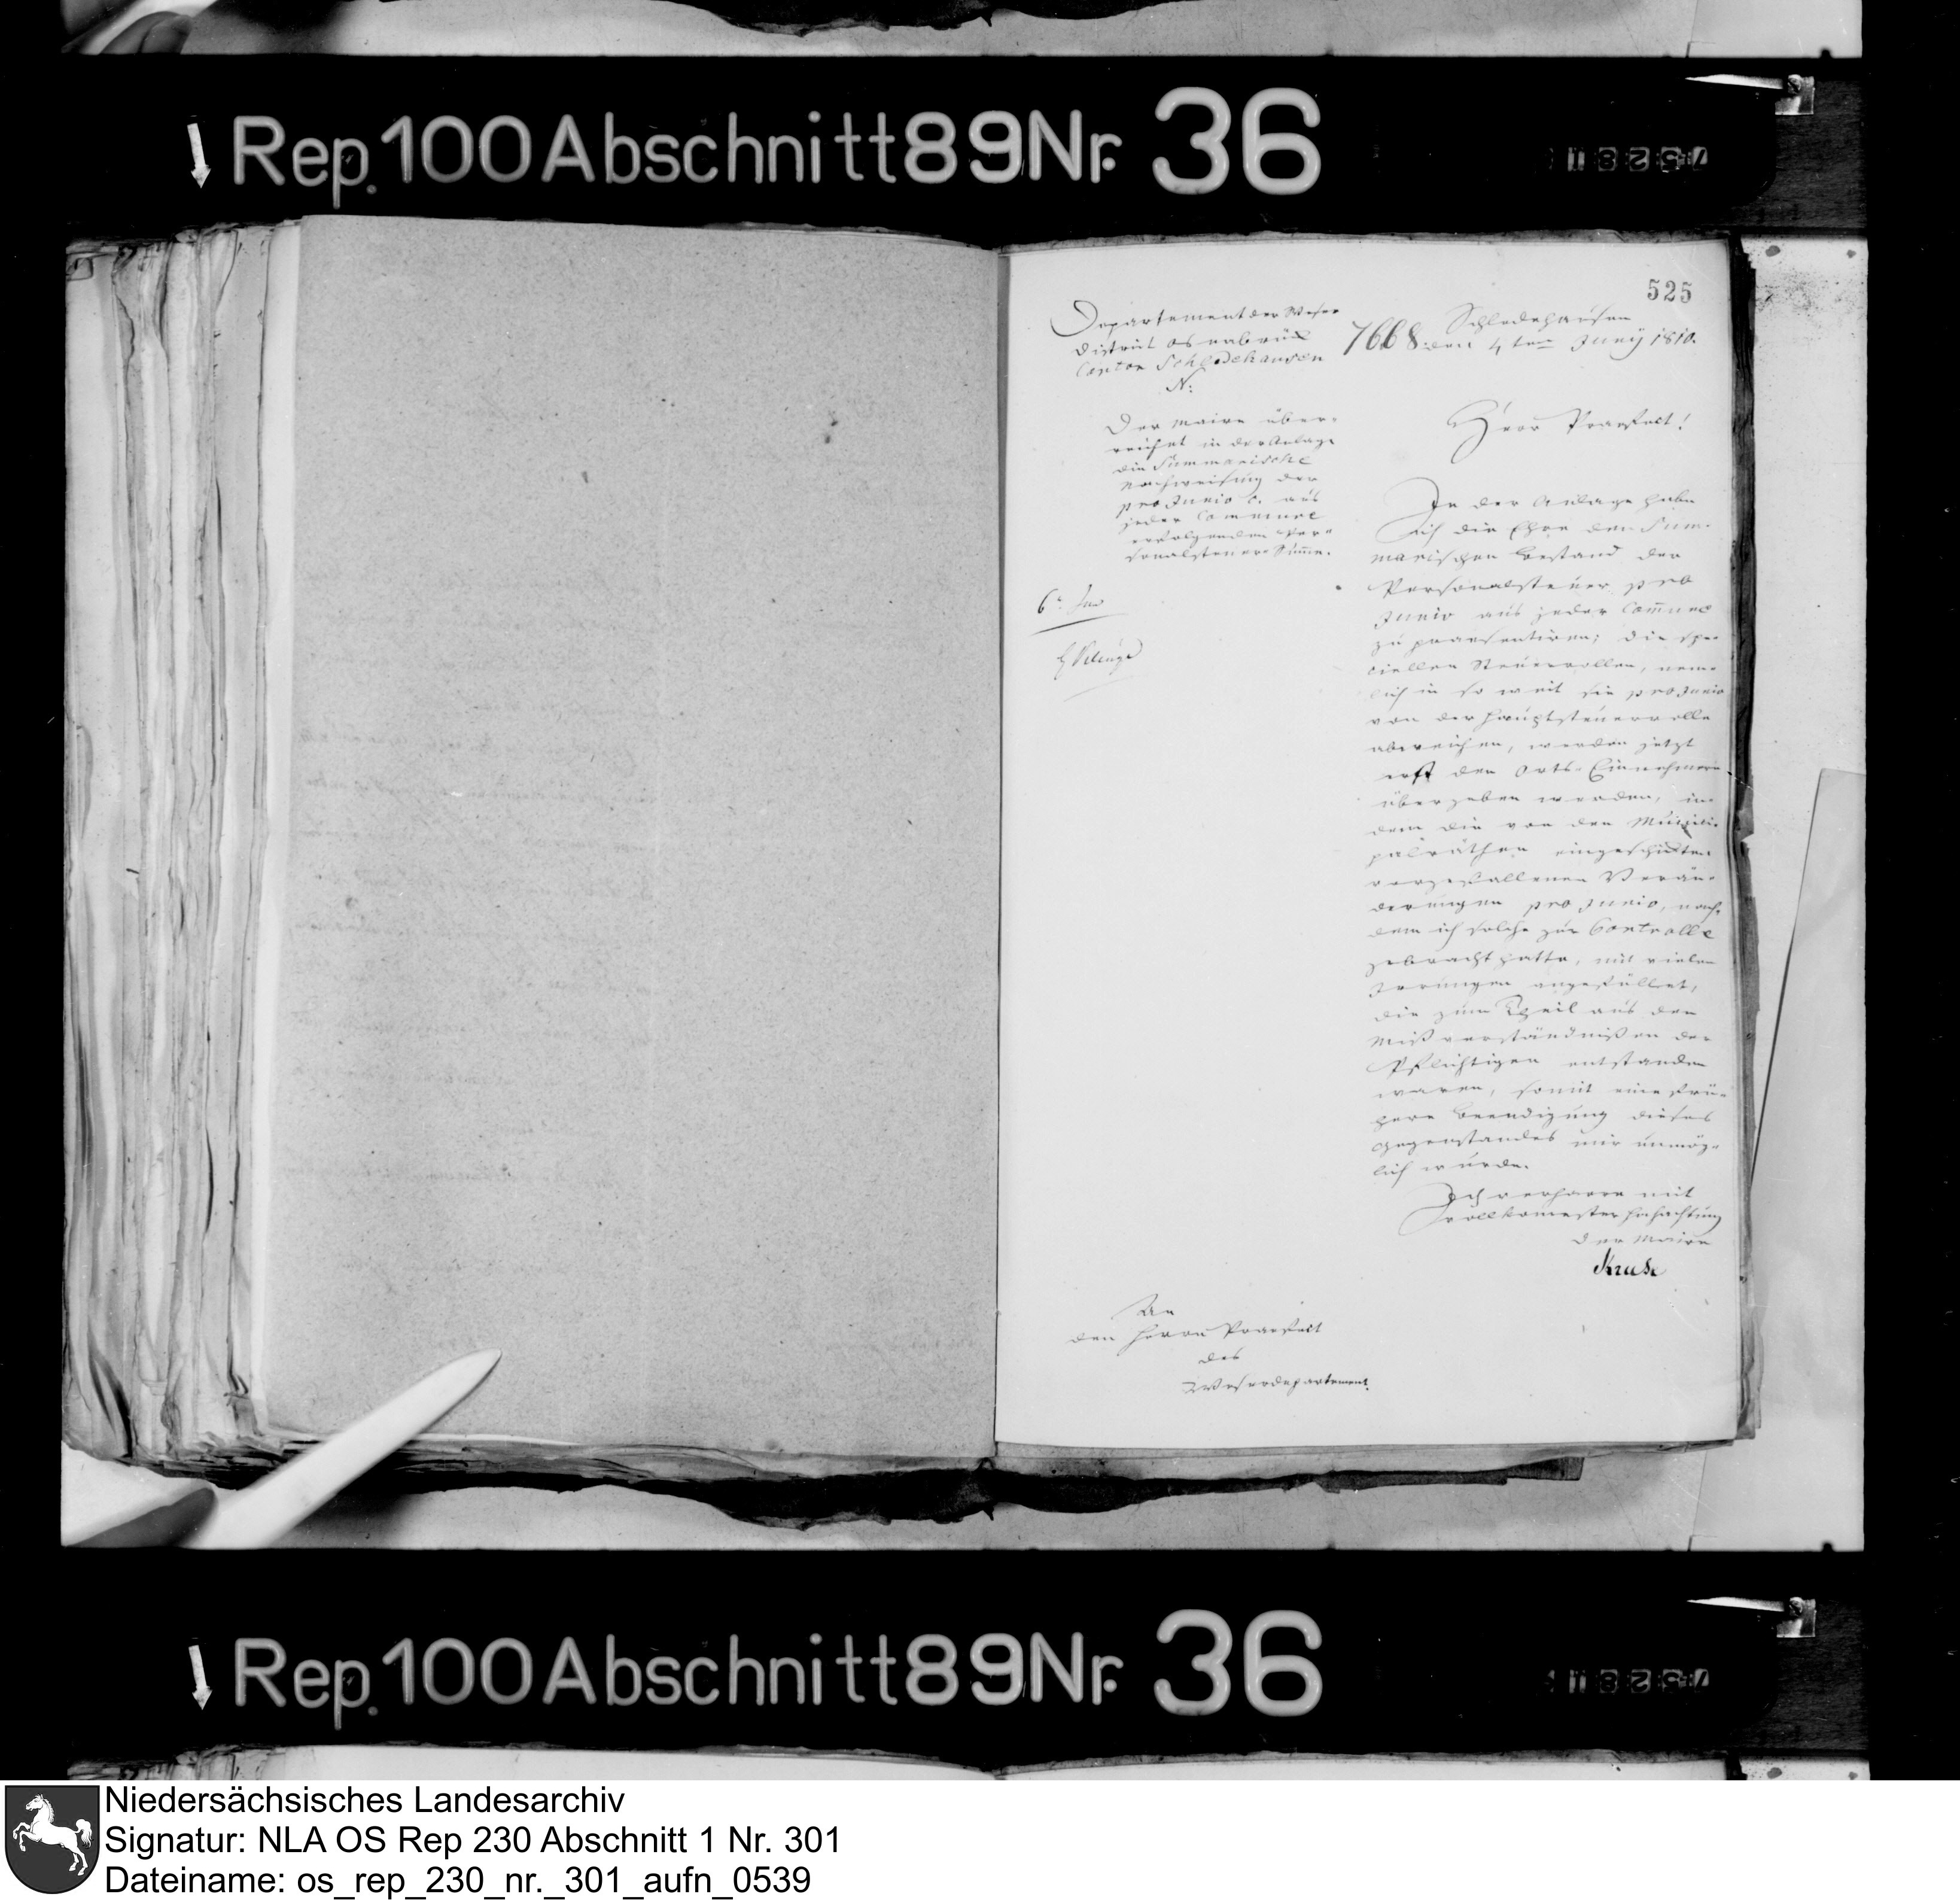 Rep. 100 Abschnitt 89 Nr. 36
525
Departement der Weser
District Osnabrück
Canton Schledehausen
N:
7668.
Schledehausen
den 4ten Juny 1810.
Der Maire über-
reichet in der Anlage
die Summarische
Nachweisung der
pro Junio c. aus
jeder Commune
erfolgenden Per-
sonalsteuer-Summe.
Herr Praefect!
In der Anlage habe
ich die Ehre den Sum-
marischen Bestand der
Personalsteuer pro
Junio aus jeder Commune
zu praesentiren; die spe-
ciellen Steuerrollen, nem-
lich in so weit sie pro Junio
von der Hauptsteuerrolle
abweichen, werden jetzt
erst den Orts-Einnehmern
übergeben werden, in-
dem die von den Munici-
palräthen eingeschickten
vorgefallenen Verän-
derungen pro Junio, nach-
dem ich solche zur Controlle
gebracht hatte, mit vielen
Irrungen angefüllet,
die zum Theil aus den
Mißverständnißen der
Pflichtigen entstanden
waren, somit eine frü-
here Beendigung dieses
Gegenstandes mir unmög-
lich wurde.
Ich verharre mit
vollkomester Hochachtung
Der Maire
Kruse
An
den Herrn Praefect
des
Weserdepartement.
Rep. 100 Abschnitt 89 Nr. 36
Niedersächsisches Landesarchiv
Signatur: NLA OS Rep 230 Abschnitt 1 Nr. 301
Dateiname: os_rep_230_nr._301_aufn_0539